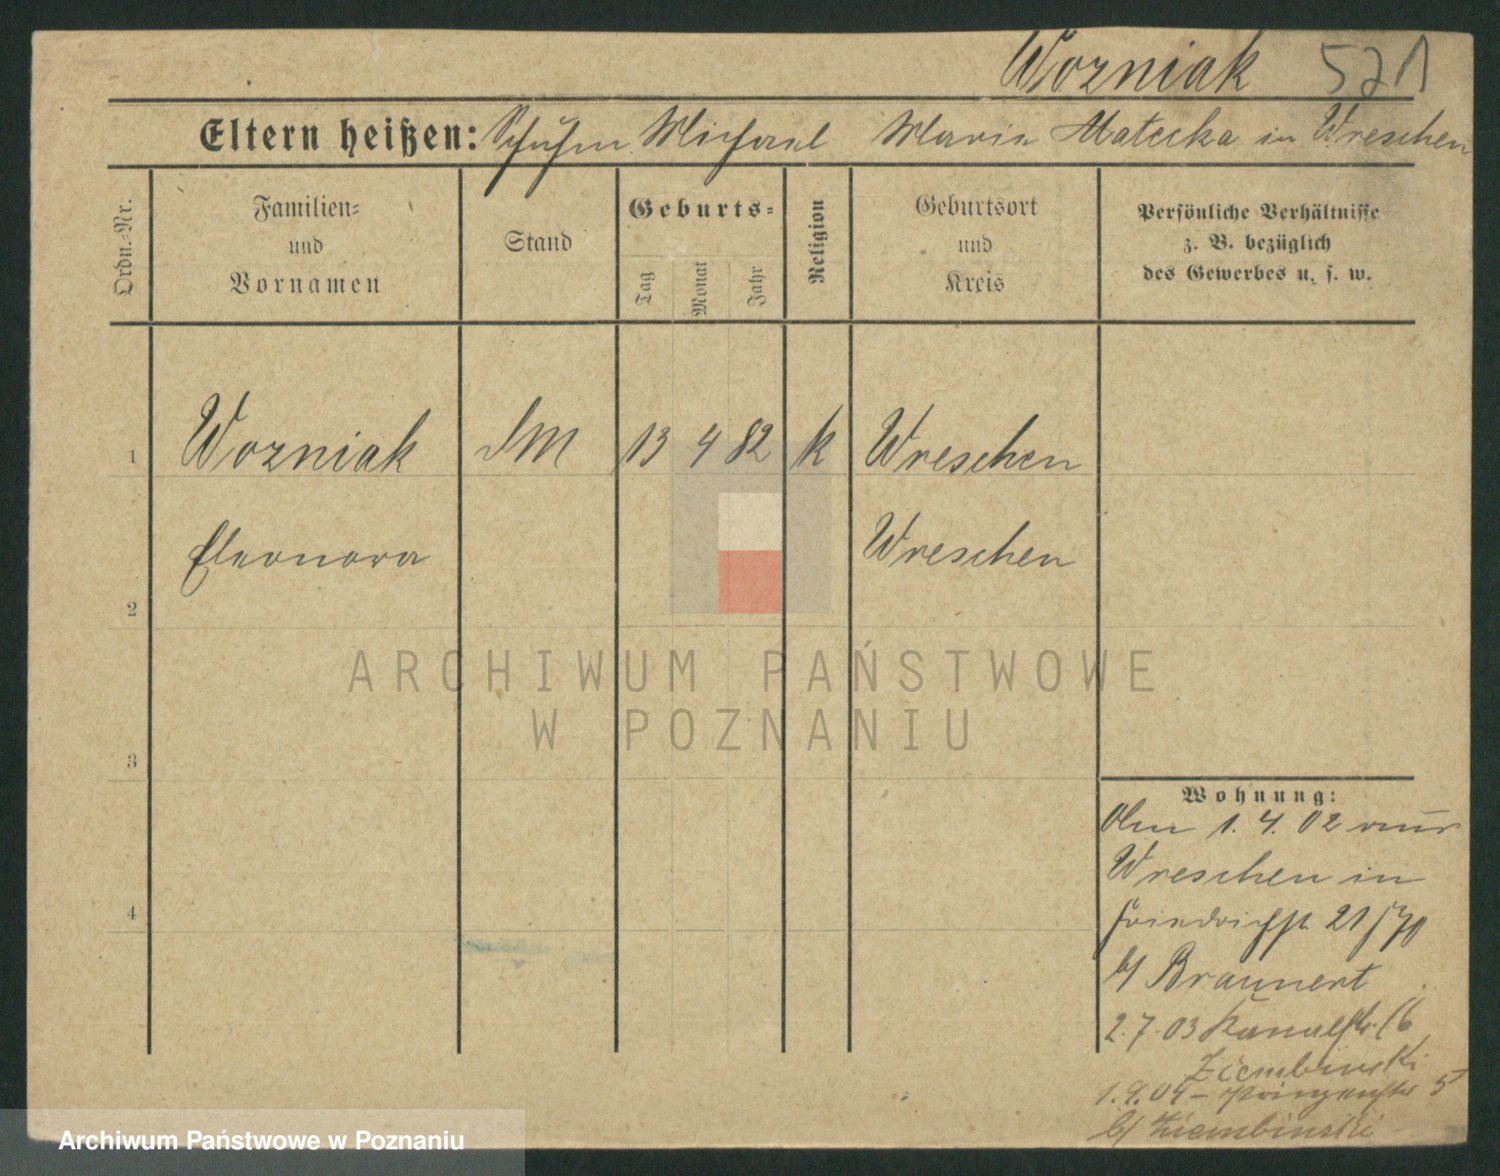 Wozniak 521
Eltern heißen: Schuhm. Michael Marie Matecka in Wreschen
Ordn.-Nr.
Familien-
und
Vornamen
Stand
Geburts-
Tag
Monat
Jahr
Religion
Geburtsort
und
Kreis
Persönliche Verhältnisse
z. B. bezüglich
des Gewerbes u. s. w.
1 Wozniak DM 13 4 82 k Wreschen
Eleonora Wreschen
2
ARCHIWUM PAŃSTWOWE
W POZNANIU
3
4
Wohnung:
Am 1. 4. 02 aus
Wreschen in
Friedrichst 21
b/ Braunert
2. 7. 03 Kanalstr.
Ziembinski
1. 9. 04 – Prinzenstr 5
b/ Ziembinski
Archiwum Państwowe w Poznaniu